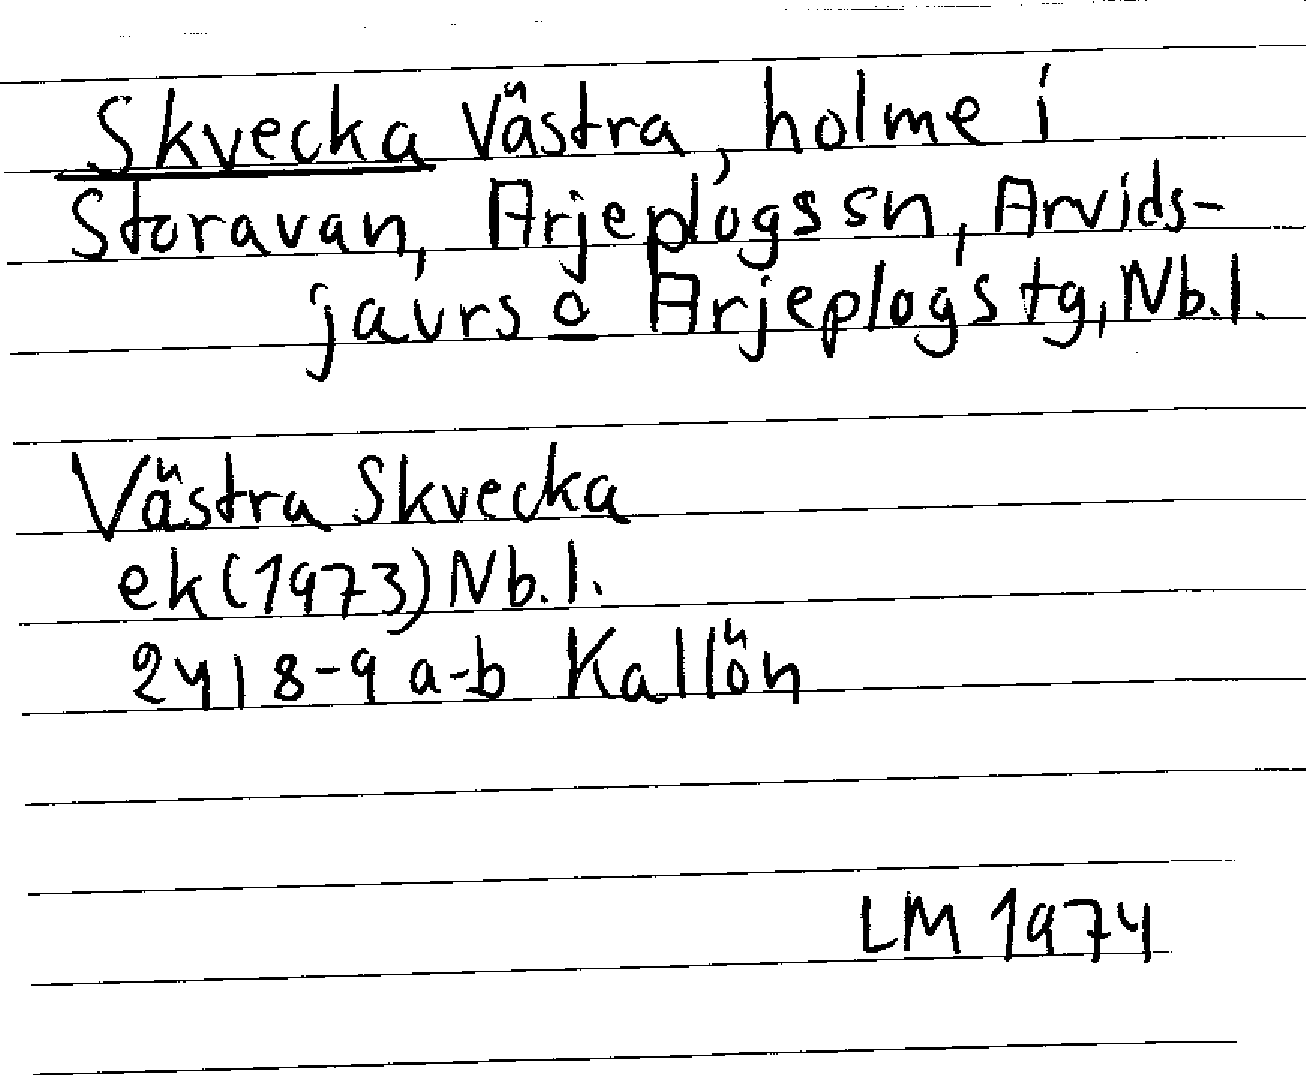 Skvecka Västra, holme i
Storavan, Arjeplogs sn, Arvids-
jaurs o Arjeplogs tg, Nb.l.
Västra Skvecka
ek (1973) Nb.l.
24I 8-9 a-b Kallön
LM 1974